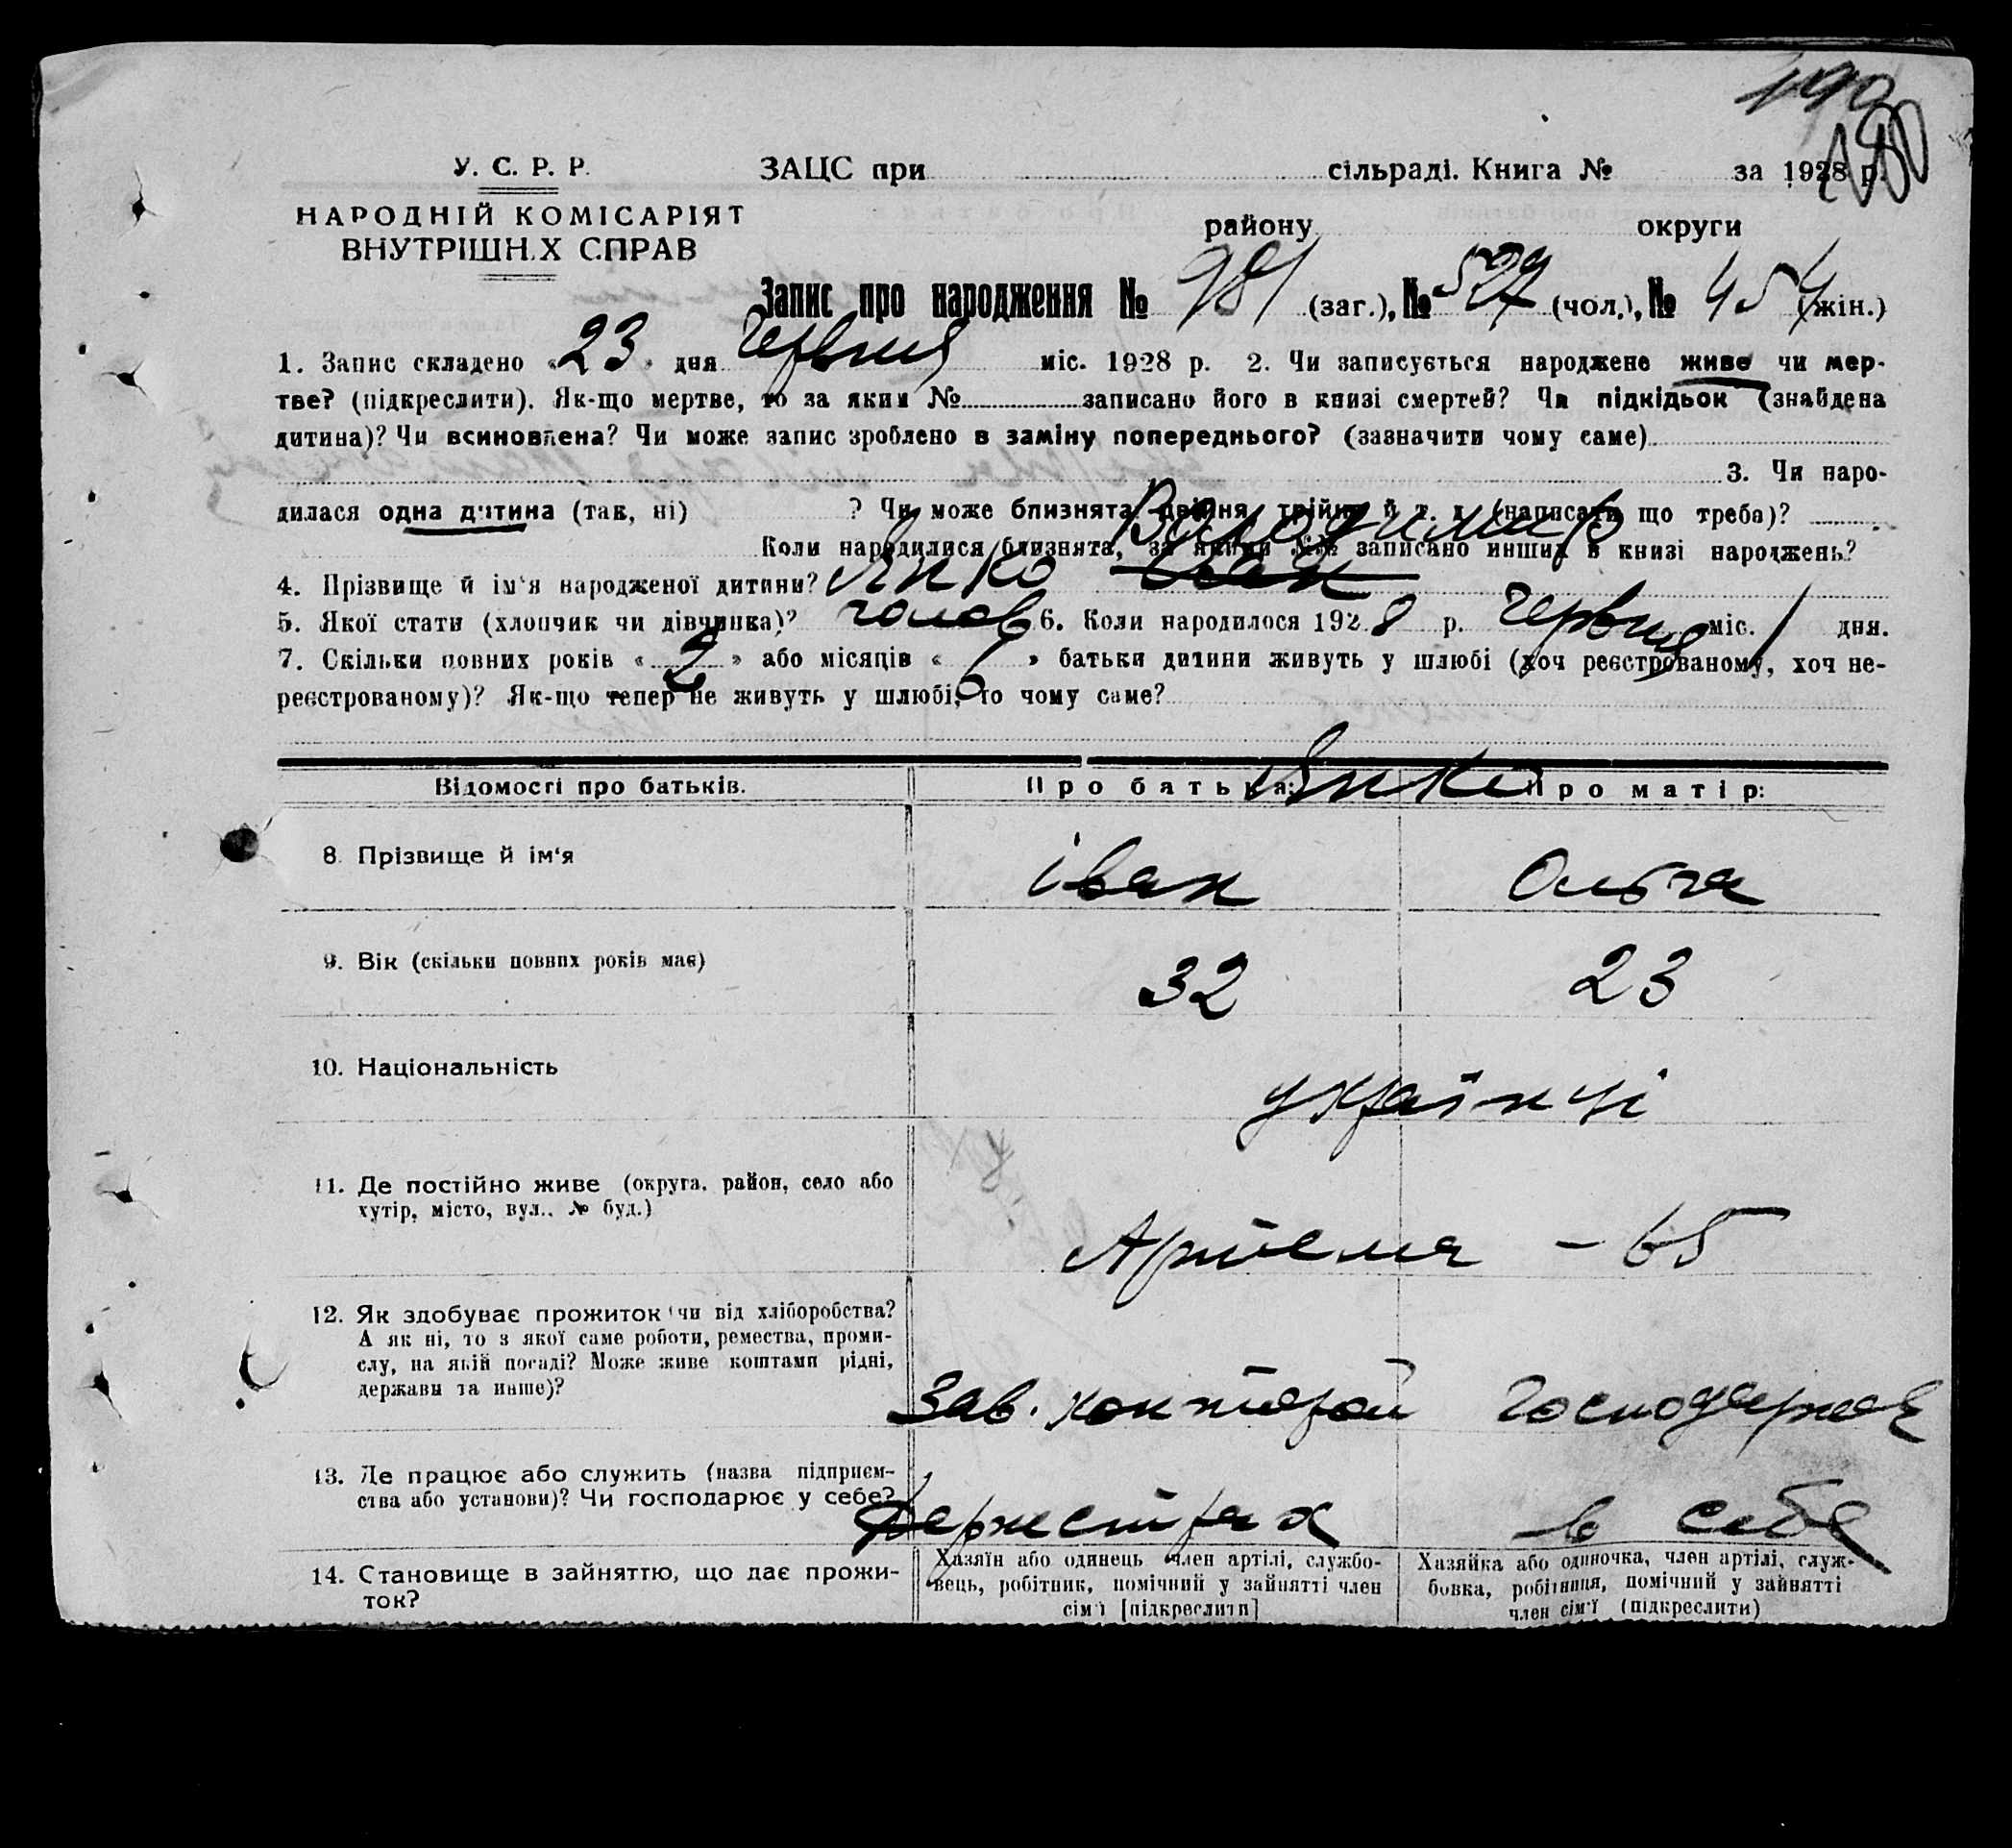 190
180
У. С. Р. Р. ЗАЦС при сільраді. Книга № за 1928 р.
НАРОДНІЙ КОМІСАРІЯТ району округи
ВНУТРІШН.Х СПРАВ
Запис про народження № 981 (заг.), № 527 (чол.), № 454 (жін.)
1. Запис складено «23» дня Червня міс. 1928 р. 2. Чи записується народжене живе чи мер-
тве? (підкреслити). Як-що мертве, то за яким № записано його в книзі смертей? Чи підкідьок (знайдена
дитина)? Чи всиновлена? Чи може запис зроблено в заміну попереднього? (зазначити чому саме)
3. Чи наро-
дилася одна дитина (так, ні) ? Чи може близнята, двійня, трійня й т. д. (написати що треба)?
Коли народилися близнята, за якими №№ записано инших в книзі народжень?
Володимир
4. Прізвище й ім'я народженої дитини? Янко Іван
5. Якої стати (хлопчик чи дівчинка)? чолов 6. Коли народилося 1928 р. Червня міс. 1 дня.
7. Скільки повних років «2» або місяців « » батьки дитини живуть у шлюбі (хоч реєстрованому, хоч не-
реєстрованому)? Як-що тепер не живуть у шлюбі, то чому саме?
Відомості про батьків. Про батька: Про матір:
Янко
8. Прізвище й ім'я Іван Ольга
9. Вік (скільки повних років має) 32 23
10. Національність українці
11. Де постійно живе (округа, район, село або
хутір, місто, вул., № буд.)
Артема - 65
12. Як здобуває прожиток (чи від хліборобства?
А як ні, то з якої саме роботи, ремества, проми-
слу, на якій посаді? Може живе коштами рідні,
держави та инше)?
Зав. конторой Господарює
13. Де працює або служить (назва підприєм-
ства або установи)? Чи господарює у себе?
Держстрах в себе
14. Становище в зайняттю, що дає прожи-
ток?
Хазяїн або одинець член артілі, службо-
вець, робітник, помічний у зайнятті член
сім'ї [підкреслити]
Хазяйка або одиночка, член артілі, служ-
бовка, робітниця, помічний у зайнятті
член сім'ї (підкреслити)